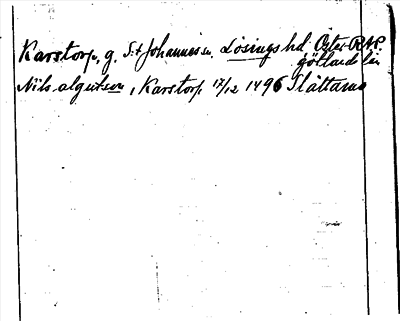 Karstorp, g. S:t Johannes sn. Lösings hd. Öster-
götlands län
Nils algutson, Karstorp 17/12 1496